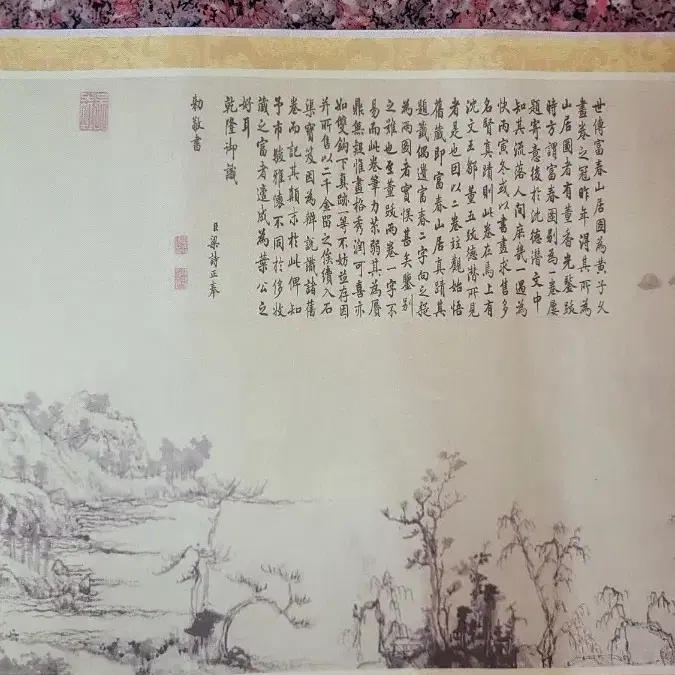 世傳富春山居圖為黃子久
畫卷之冠昨年得其所為
山居圖者有董香光鑒跋
時方謂富春圖別為一卷屢
題寄意後於沈德潛文中
知其流落人間庶幾一遇為
快丙寅冬或以書畫求售多
名賢真蹟則此卷在焉上有
沈文王鄒董五跋德潛所見
者是也因以二卷竝觀始悟
舊藏即富春山居真蹟其
題籤偶遺富春二字向之疑
為兩圖者實悮甚矣鑒別
之難也至董跋兩卷一字不
易而此卷筆力苶弱其為贋
鼎無疑惟畫格秀潤可喜亦
如雙鈎下真跡一等不妨並存因
并所售以二千金留之俟續入石
渠寶笈因為辨說識諸舊
卷而記其顛末於此俾知
予市駿雅懷不同於侈收
藏之富者適成為葉公之
好耳
乾隆御識
臣梁詩正奉
勅敬書